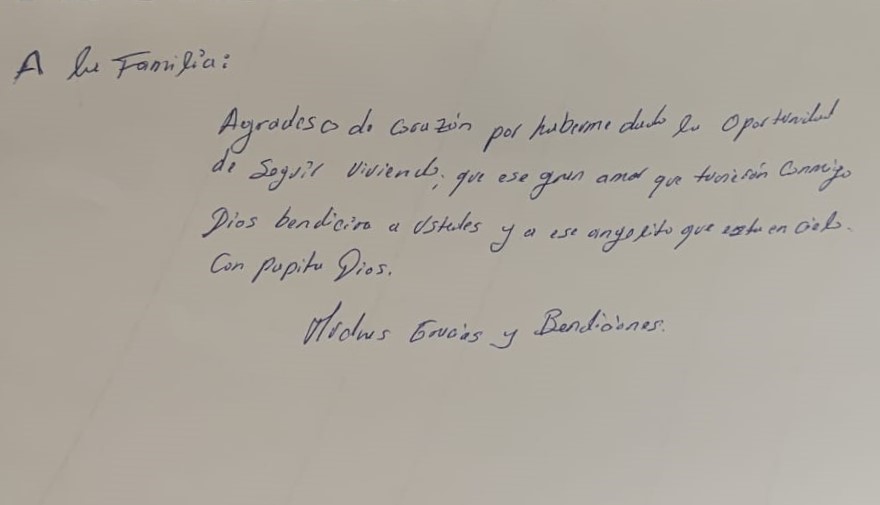 A la Familia:
Agradesco de corazón por haberme dado la Oportunidad
de Seguir Viviendo, que ese gran amor que tuvierón Conmigo
Dios bendicira a Ustedes y a ese angelito que esta en cielo.
Con papita Dios.
Muchas Gracias y Bendiciones.